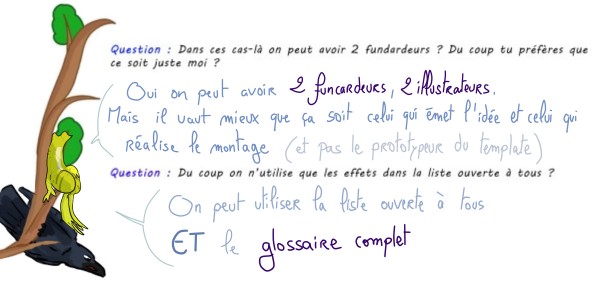 Question : Dans ces cas-là on peut avoir 2 fundardeurs ? Du coup tu préfères que
ce soit juste moi ?
Oui on peut avoir 2 funcardeurs, 2 illustrateurs.
Mais il vaut mieux que ça soit celui qui émet l'idée et celui qui
réalise le montage (et pas le prototypeur du template)
Question : Du coup on n'utilise que les effets dans la liste ouverte à tous ?
On peut utiliser la liste ouverte à tous
ET le glossaire complet